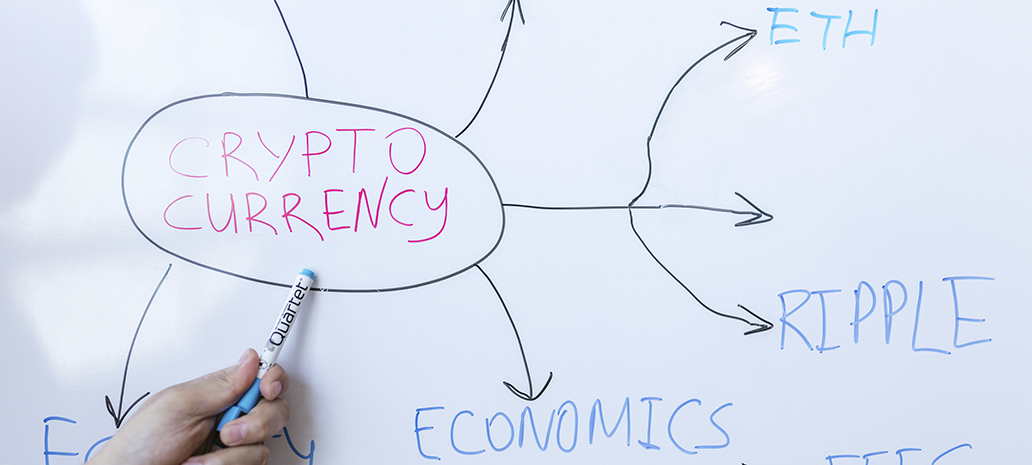 ETH
CRYPTO
CURRENCY
Quartet
RIPPLE
ECONOMICS